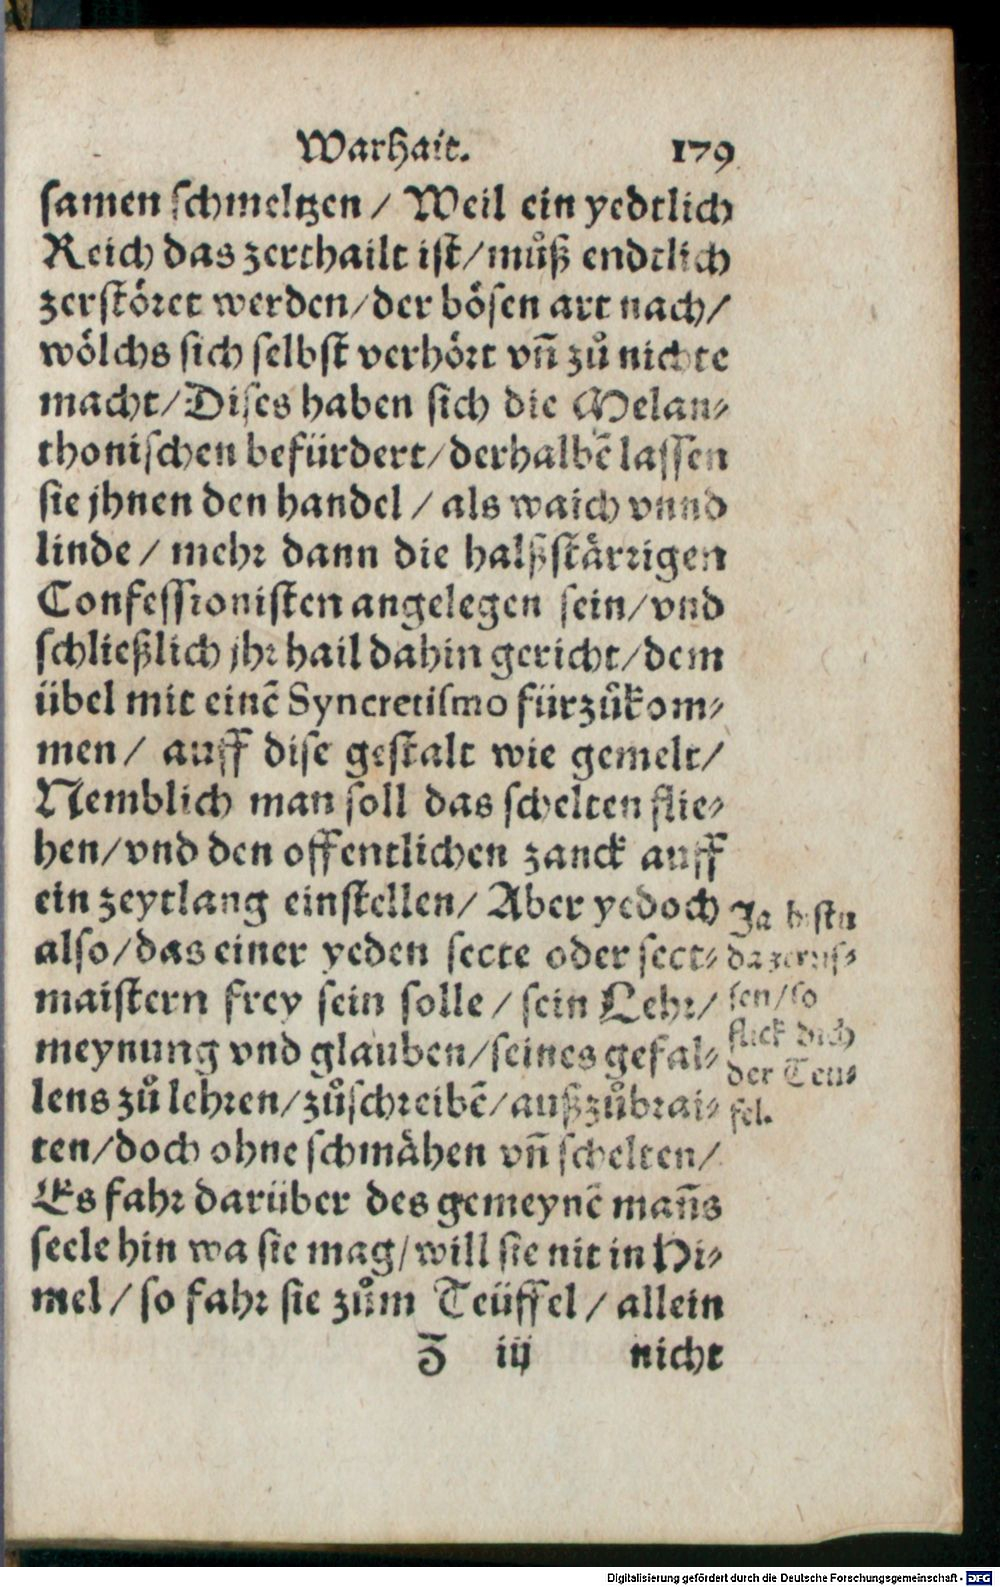 Warhait. 179
samen schmeltzen / Weil ein yedtlich
Reich das zerthailt ist / můß endtlich
zerstöret werden / der bösen art nach /
wölchs sich selbst verhört vñ zů nichte
macht / Dises haben sich die Melan⸗
thonischen befürdert / derhalbẽ lassen
sie jhnen den handel / als waich vnnd
linde / mehr dann die halßstärrigen
Confessionisten angelegen sein / vnd
schließlich jhr hail dahin gericht / dem
übel mit einẽ Syncretismo fürzůkom⸗
men / auff dise gestalt wie gemelt /
Nemblich man soll das schelten flie⸗
hen / vnd den offentlichen zanck auff
ein zeytlang einstellen / Aber yedoch
also / das einer yeden secte oder sect⸗
maistern frey sein solle / sein Lehr /
meynung vnd glauben / seines gefal⸗
lens zů lehren / zůschreibẽ / außzůbrai⸗
ten / doch ohne schmähen vñ schelten /
Es fahr darüber des gemeynẽ mañs
seele hin wa sie mag / will sie nit in Hi⸗
mel / so fahr sie zům Teüffel / allein
Z iij nicht
Ja bistu
da zerris⸗
sen / so
flick dich
der Teu⸗
fel.
Digitalisierung gefördert durch die Deutsche Forschungsgemeinschaft - DFG